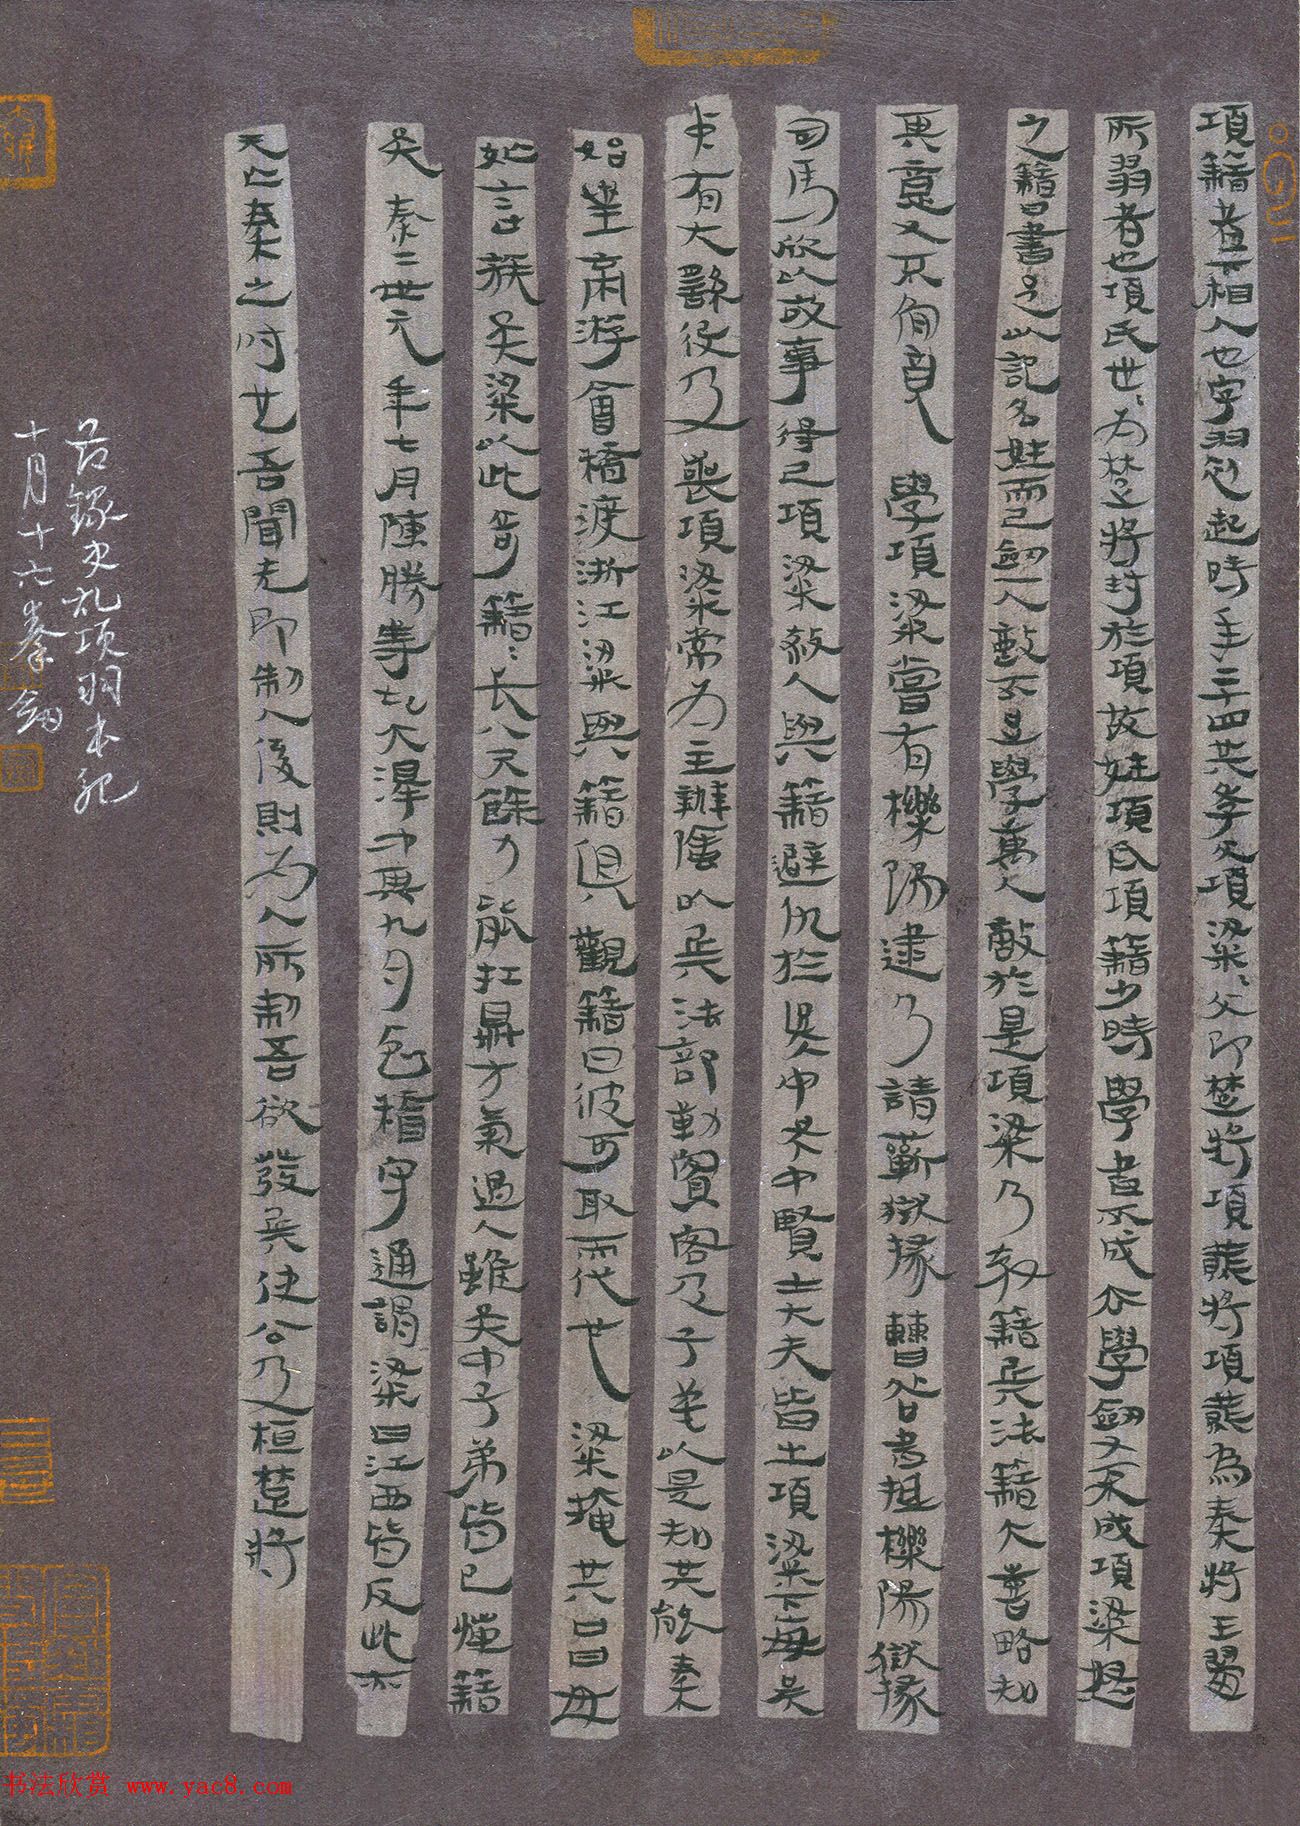 項籍者下相人也字羽初起時年二十四其季父項梁梁父即楚將項燕將項燕為秦將王翦
所翦者也項氏世世為楚將封於項故姓項氏項籍少時學書不成去學劍又不成項梁怒
之籍曰書足以記名姓而已劍一人敵不足學學萬人敵於是項梁乃教籍兵法籍大喜略知
其意又不肯竟學項梁嘗有櫟陽逮乃請蘄獄掾曹咎書抵櫟陽獄掾
司馬欣以故事得已項梁殺人與籍避仇於吳中吳中賢士大夫皆出項梁下每吳
中有大繇役乃及喪項梁常為主辦陰以兵法部勒賓客及子弟以是知其能秦
始皇帝游會稽渡浙江梁與籍俱觀籍曰彼可取而代也梁掩其口曰毋
妄言族矣梁以此奇籍籍長八尺餘力能扛鼎才氣過人雖吳中子弟皆已憚籍
矣秦二世元年七月陳勝等起大澤中其九月會稽守通謂梁曰江西皆反此亦
天亡秦之時也吾聞先即制人後則為人所制吾欲發兵使公及桓楚將
右錄史記項羽本紀
十月十六 秦
书法欣赏 www.yac8.com